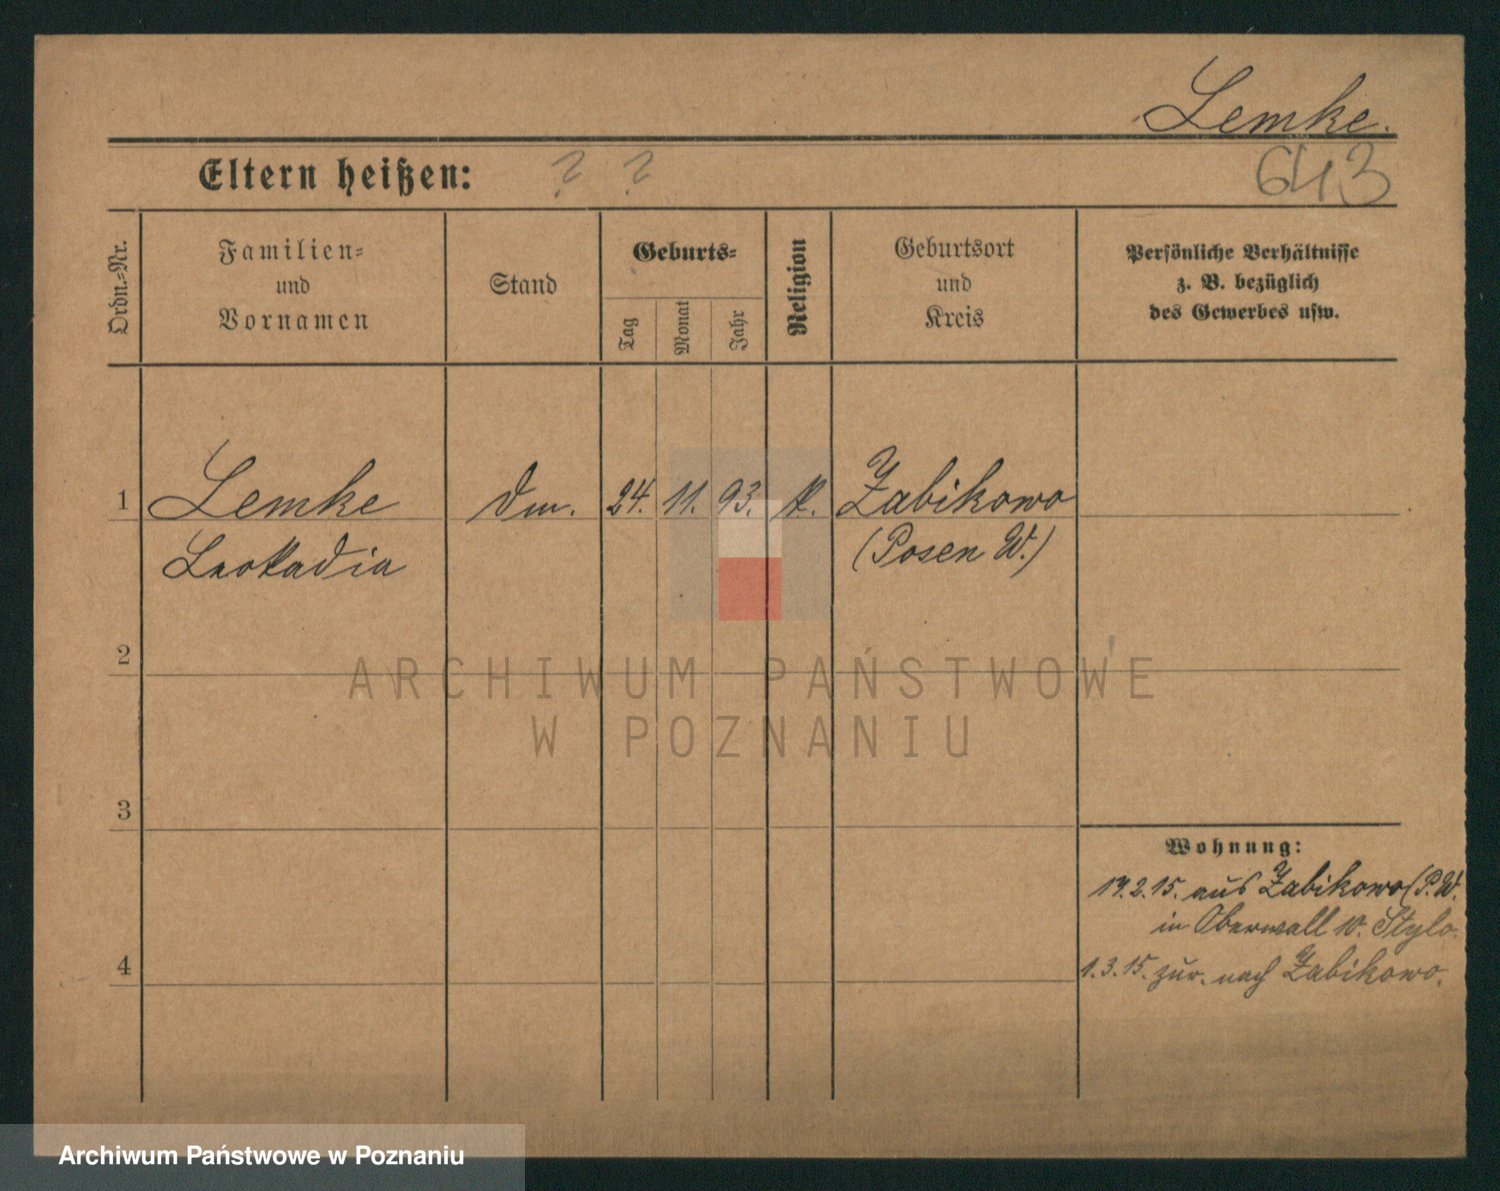 Lemke.
Eltern heißen: ? ?
643
Ordn.-Nr.
Familien-
und
Vornamen
Stand
Geburts-
Tag
Monat
Jahr
Religion
Geburtsort
und
Kreis
Persönliche Verhältnisse
z. B. bezüglich
des Gewerbes usw.
1 Lemke 24. 11. 93. k. Zabikowo
Leokadia (Posen W.)
2
ARCHIWUM PAŃSTWOWE
W POZNANIU
3
Wohnung:
aus Zabikowo (P. W.
in Oberwall 10. Stylo.
4
1.3.15. zur. nach Zabikowo.
Archiwum Państwowe w Poznaniu